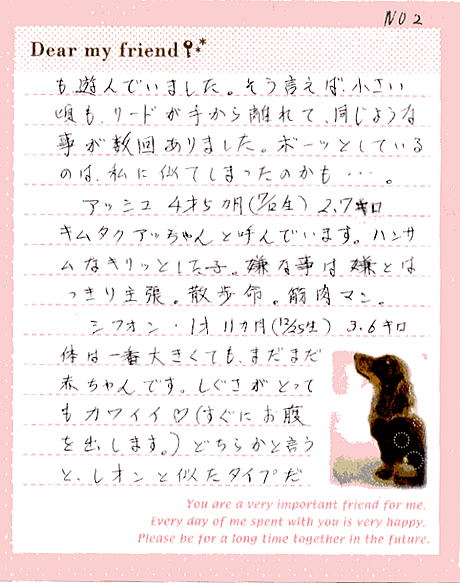 NO 2
Dear my friend
も遊んでいました。そう言えば、小さい
頃も、リードが手から離れて、同じような
事が数回ありました。ボーッとしている
のは、私に似てしまったのかも・・・。
アッシュ 4才5ヵ月(7/12生) 2.7キロ
キムタクアッちゃんと呼んでいます。ハンサ
ムなキリッとした子。嫌な事は嫌とは
っきり主張。散歩命。筋肉マン。
シフォン・1才11ヵ月(12/25生) 3.6キロ
体は一番大きくても、まだまだ
赤ちゃんです。しぐさがとって
もカワイイ♡(すぐにお腹
を出します。)どちらかと言う
と、レオンと似たタイプだ
You are a very important friend for me.
Every day of me spent with you is very happy.
Please be for a long time together in the future.